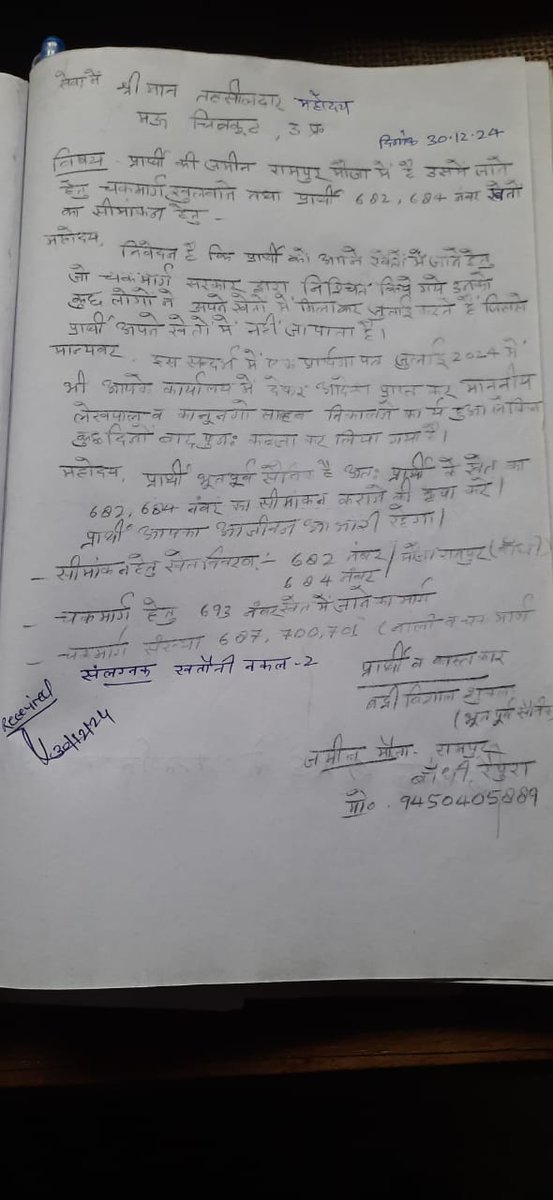 सेवा में श्रीमान तहसीलदार महोदय
मऊ चित्रकूट, उ प्र
दिनांक 30.12.24
विषय - प्रार्थी की जमीन रामपुर मौजा में है उसमें जाने
हेतु चकमार्ग खुलवाने तथा प्रार्थी 682, 684 नंबर खेतो
का सीमांकन हेतु -
महोदय, निवेदन है कि प्रार्थी को अपने खेतों में जाने हेतु
जो चकमार्ग सरकार द्वारा निश्चित किये गये उनको
कुछ लोगो ने अपने खेतो में मिलाकर जुताई करते हैं जिससे
प्रार्थी अपने खेतो में नहीं जा पाता है।
मान्यवर, इस सन्दर्भ में एक प्रार्थना पत्र जुलाई 2024 में
भी आपके कार्यालय में देकर आदेश प्राप्त कर माननीय
लेखपाल व कानूनगो साहब निकालने कार्य हुआ लेकिन
कुछ दिनों बाद पुनः कब्जा कर लिया गया है।
महोदय, प्रार्थी भूतपूर्व सैनिक है अतः प्रार्थी के खेत का
682, 684 नंबर का सीमांकन कराने की कृपा करें।
प्रार्थी आपका आजीवन आभारी रहेगा।
- सीमांकन हेतु खेत विवरण :- 682 नंबर / मौजा रामपुर
684 नंबर
- चकमार्ग हेतु 693 नंबर खेत में जाने का मार्ग
- चकमार्ग संख्या 687, 700, 701 (नाली व चक मार्ग
संलग्नक खतौनी नकल - 2
प्रार्थी व कास्तकार
Received
30/12/24
बद्री विशाल शुक्ल
(भूतपूर्व सैनिक
जमीन मौजा - रामपुर
रैपुरा
मो० . 9450405889